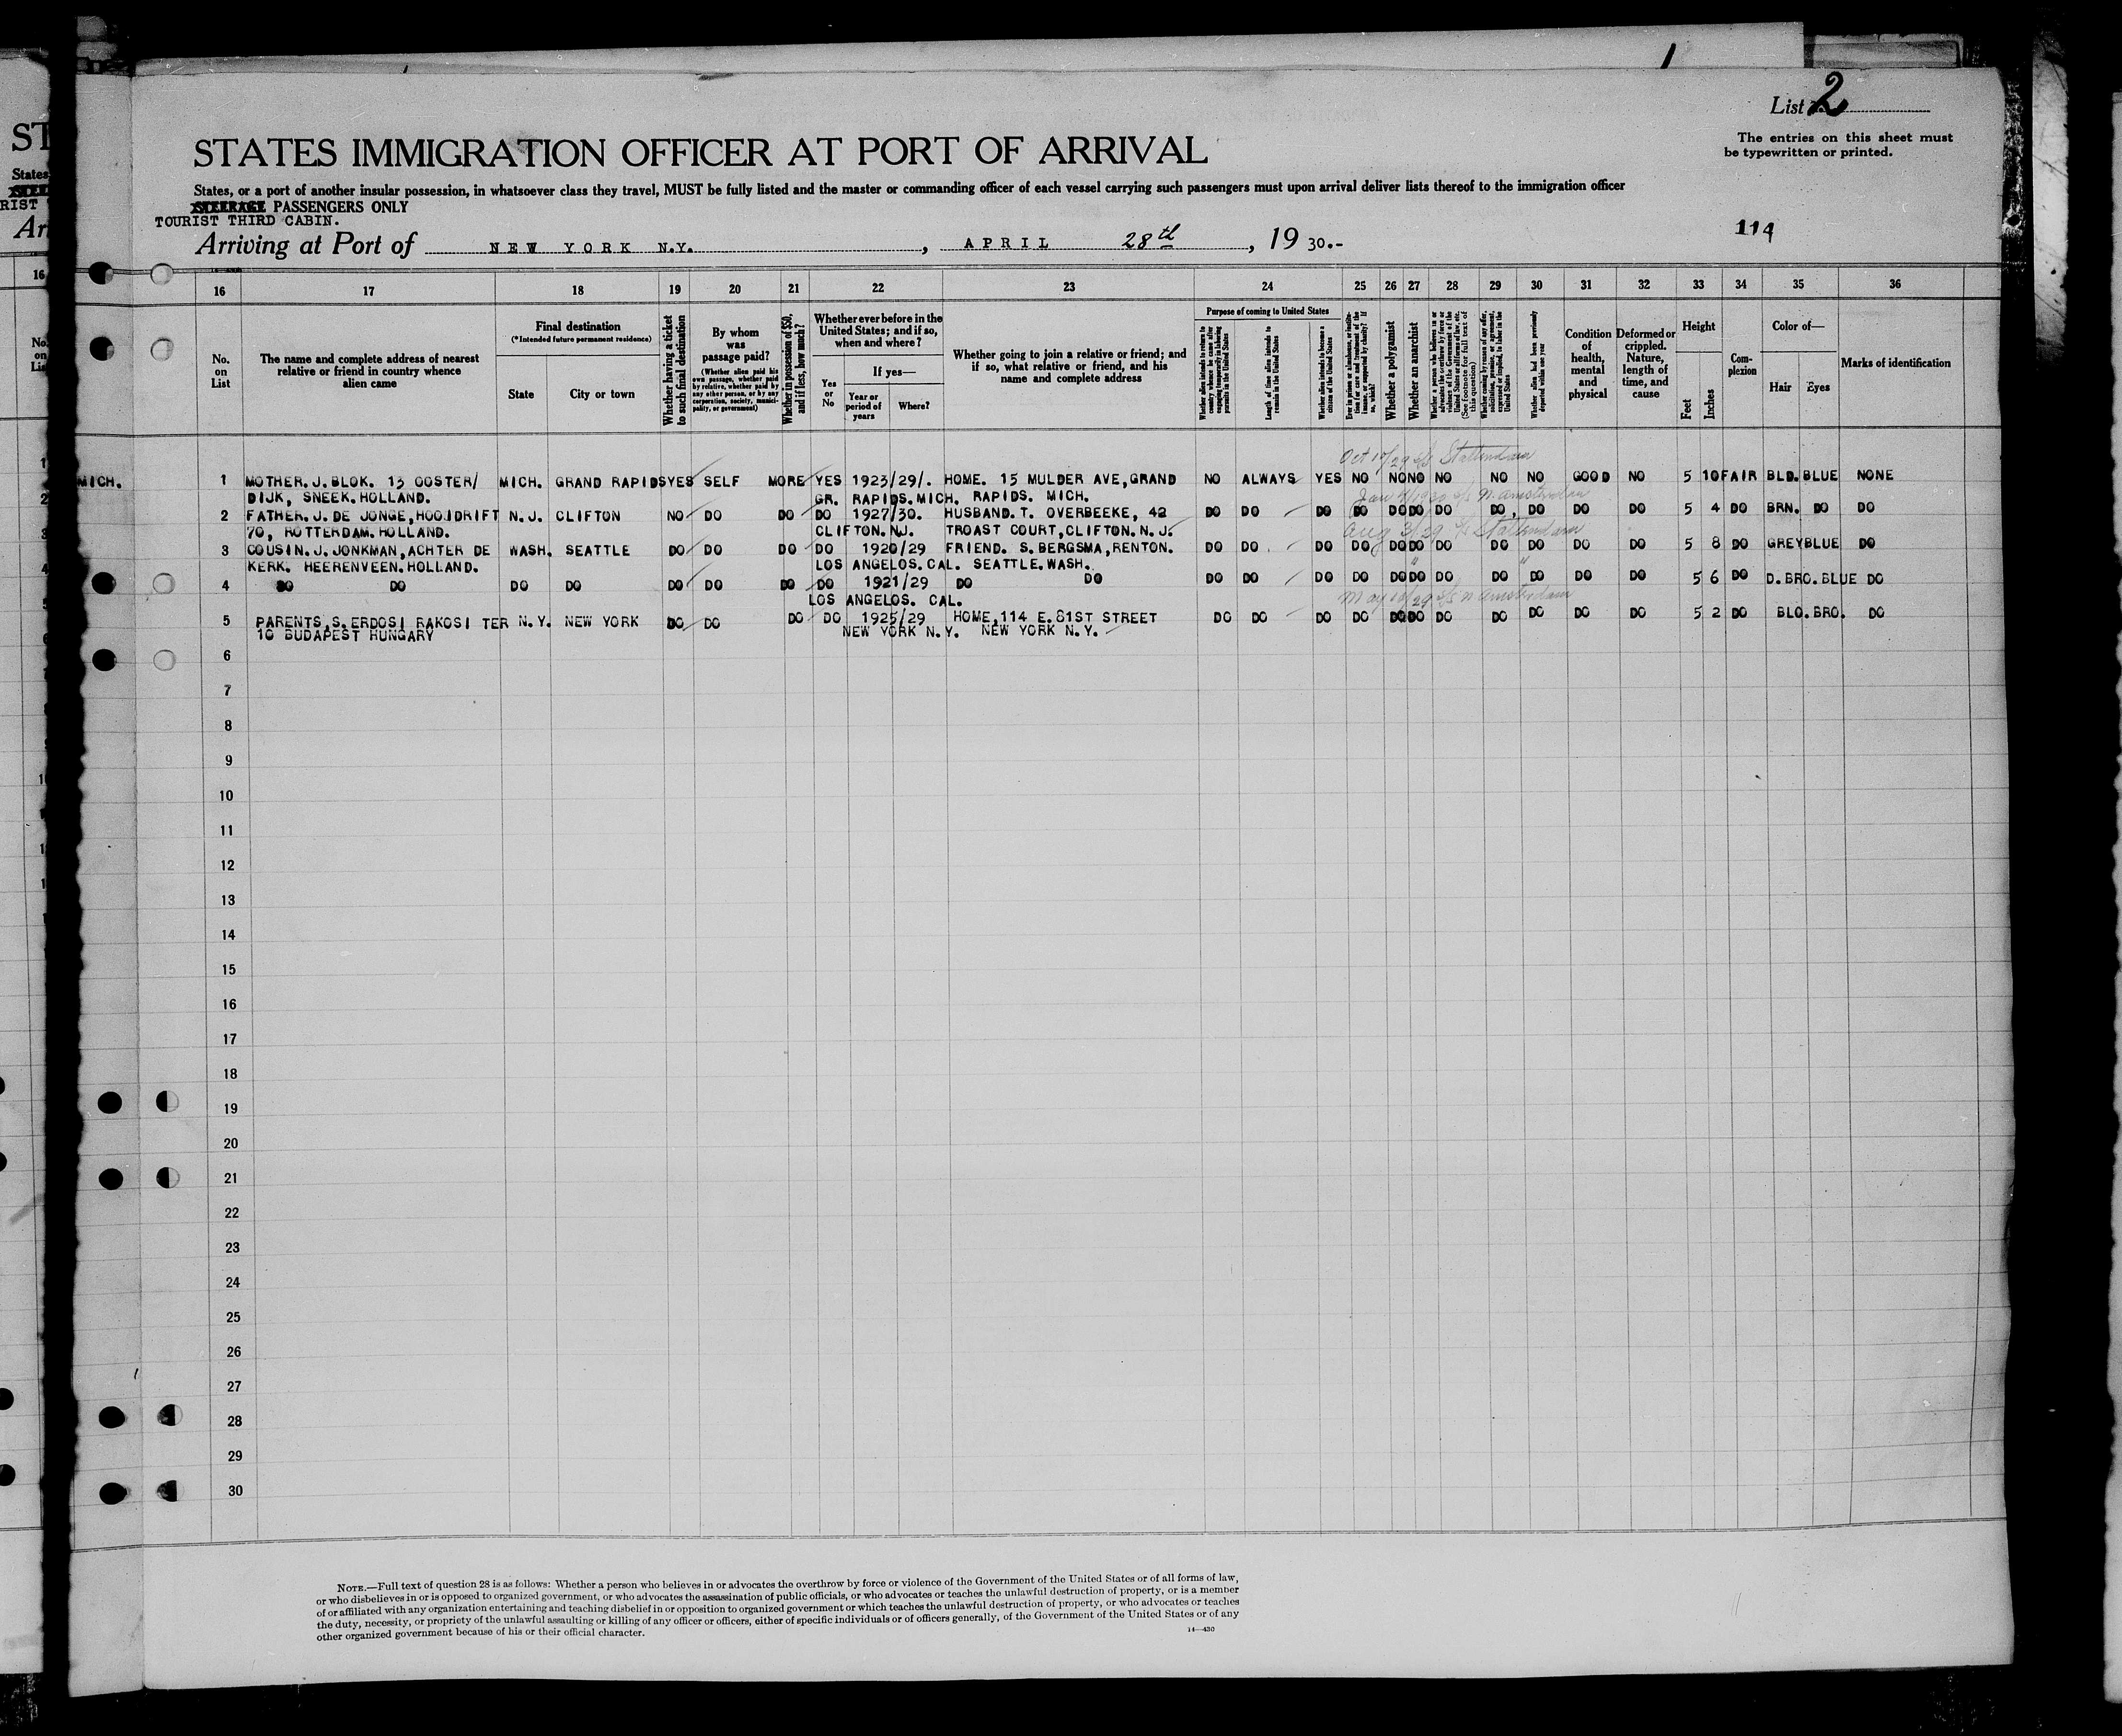 1
List 2
The entries on this sheet must
be typewritten or printed.
STATES IMMIGRATION OFFICER AT PORT OF ARRIVAL
States, or a port of another insular possession, in whatsoever class they travel, MUST be fully listed and the master or commanding officer of each vessel carrying such passengers must upon arrival deliver lists thereof to the immigration officer
STEERAGE PASSENGERS ONLY
TOURIST THIRD CABIN.
114
Arriving at Port of NEW YORK N.Y., APRIL 28th, 1930.-
16 17 18 19 20 21 22 23 24 25 26 27 28 29 30 31 32 33 34 35 36
No. on List
The name and complete address of nearest relative or friend in country whence alien came
Final destination
(*Intended future permanent residence)
State
City or town
Whether having a ticket to such final destination
By whom was passage paid?
(Whether alien paid his own passage, whether paid by relative, whether paid by any other person, or by any corporation, society, municipality, or government)
Whether in possession of $50, and if less, how much?
Whether ever before in the United States; and if so, when and where?
Yes or No
If yes—
Year or period of years
Where?
Whether going to join a relative or friend; and if so, what relative or friend, and his name and complete address
Purpose of coming to United States
Whether alien intends to return to country whence he came after engaging temporarily in laboring pursuits in the United States
Length of time alien intends to remain in the United States
Whether alien intends to become a citizen of the United States
Ever in prison or almshouse, or institution for care and treatment of the insane, or supported by charity? If so, which?
Whether a polygamist
Whether an anarchist
Whether a person who believes in or advocates the overthrow by force or violence of the Government of the United States or all forms of law, etc. (See footnote for full text of this question)
Whether coming by reason of any offer, solicitation, promise, or agreement, expressed or implied, to labor in the United States
Whether alien had been previously deported within one year
Condition of health, mental and physical
Deformed or crippled. Nature, length of time, and cause
Height
Feet
Inches
Complexion
Color of—
Hair
Eyes
Marks of identification
Oct 10/29 s/s Statendam
MICH.
1 MOTHER.J.BLOK. 13 OOSTER/ MICH. GRAND RAPIDS YES SELF MORE YES 1923/29/. HOME. 15 MULDER AVE,GRAND NO ALWAYS YES NO NO NO NO NO NO GOOD NO 5 10 FAIR BLD. BLUE NONE
DIJK, SNEEK.HOLLAND. GR. RAPIDS.MICH. RAPIDS. MICH.
Jan 4/1930 s/s N. Amsterdam
2 FATHER.J.DE JONGE,HOOIDRIFT N.J. CLIFTON NO DO DO DO 1927/30. HUSBAND.T. OVERBEEKE, 42 DO DO DO DO DO DO DO DO DO DO DO 5 4 DO BRN. DO DO
70, ROTTERDAM.HOLLAND. CLIFTON.NJ. TROAST COURT,CLIFTON.N.J.
Aug 3/29 s/s Statendam
3 COUSIN.J.JONKMAN,ACHTER DE WASH. SEATTLE DO DO DO DO 1920/29 FRIEND. S.BERGSMA,RENTON. DO DO DO DO DO DO DO DO DO DO DO 5 8 DO GREY BLUE DO
KERK. HEERENVEEN.HOLLAND. LOS ANGELOS.CAL. SEATTLE.WASH.
4 DO DO DO DO DO DO DO DO 1921/29 DO DO DO DO DO DO DO DO DO DO DO DO DO 5 6 DO D.BRO.BLUE DO
LOS ANGELOS. CAL.
May 10/29 s/s N Amsterdam
5 PARENTS,S.ERDOSI RAKOSI TER N.Y. NEW YORK DO DO DO DO 1925/29 HOME,114 E.81ST STREET DO DO DO DO DO DO DO DO DO DO DO 5 2 DO BLO.BRO. DO
10 BUDAPEST HUNGARY NEW YORK N.Y. NEW YORK N.Y.
6
7
8
9
10
11
12
13
14
15
16
17
18
19
20
21
22
23
24
25
26
27
28
29
30
NOTE.—Full text of question 28 is as follows: Whether a person who believes in or advocates the overthrow by force or violence of the Government of the United States or of all forms of law,
or who disbelieves in or is opposed to organized government, or who advocates the assassination of public officials, or who advocates or teaches the unlawful destruction of property, or is a member
of or affiliated with any organization entertaining and teaching disbelief in or opposition to organized government or which teaches the unlawful destruction of property, or who advocates or teaches
the duty, necessity, or propriety of the unlawful assaulting or killing of any officer or officers, either of specific individuals or of officers generally, of the Government of the United States or of any
other organized government because of his or their official character.
14—430